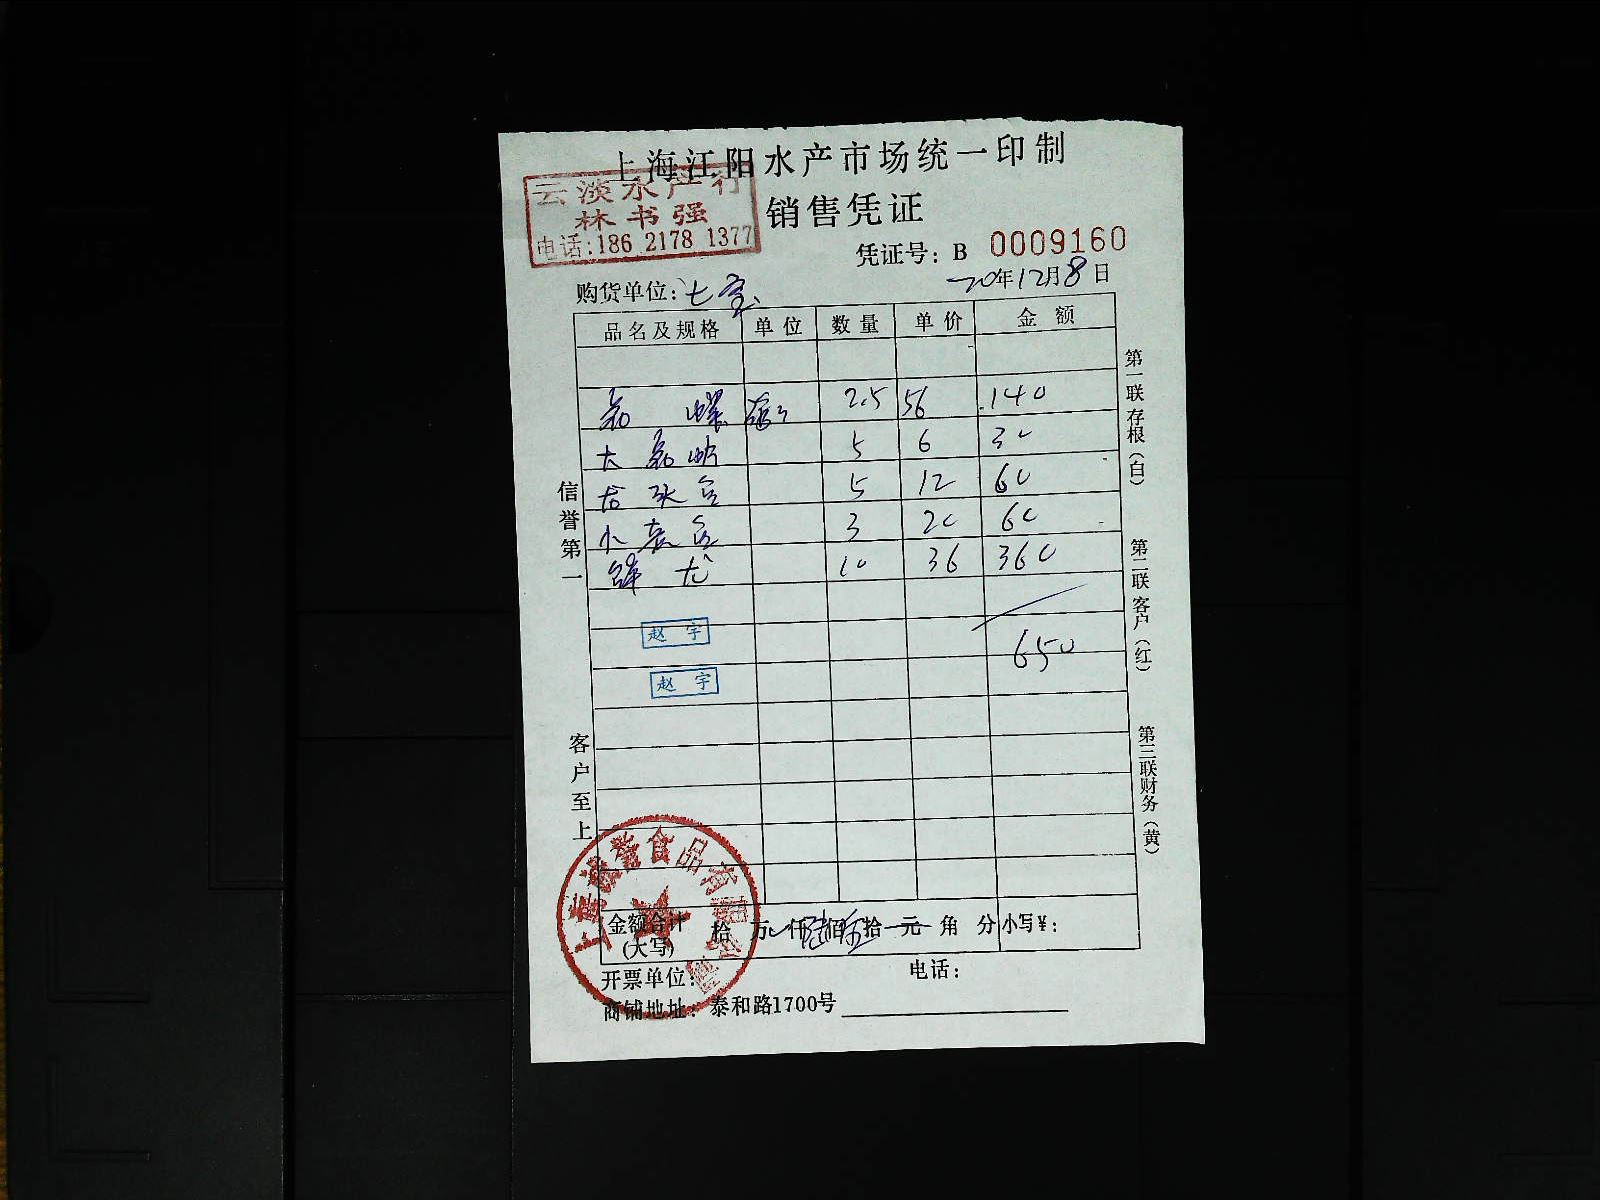 上海江阳水产市场统一印制
云淡水产行
林书强
电话:186 2178 1377
销售凭证
凭证号: B 0009160
20年12月8日
购货单位: 七宝
品名及规格 单位 数量 单价 金额
螺 2.5 56 140
大 5 6 30
5 12 60
小 3 20 60
10 36 360
赵宇
650
赵宇
信誉第一
客户至上
第一联存根(白)
第二联客户(红)
第三联财务(黄)
上海诚誉食品有限公司
金额合计(大写) 拾 万 仟陆佰伍拾元 角 分 小写¥:
开票单位: 电话:
商铺地址: 泰和路1700号